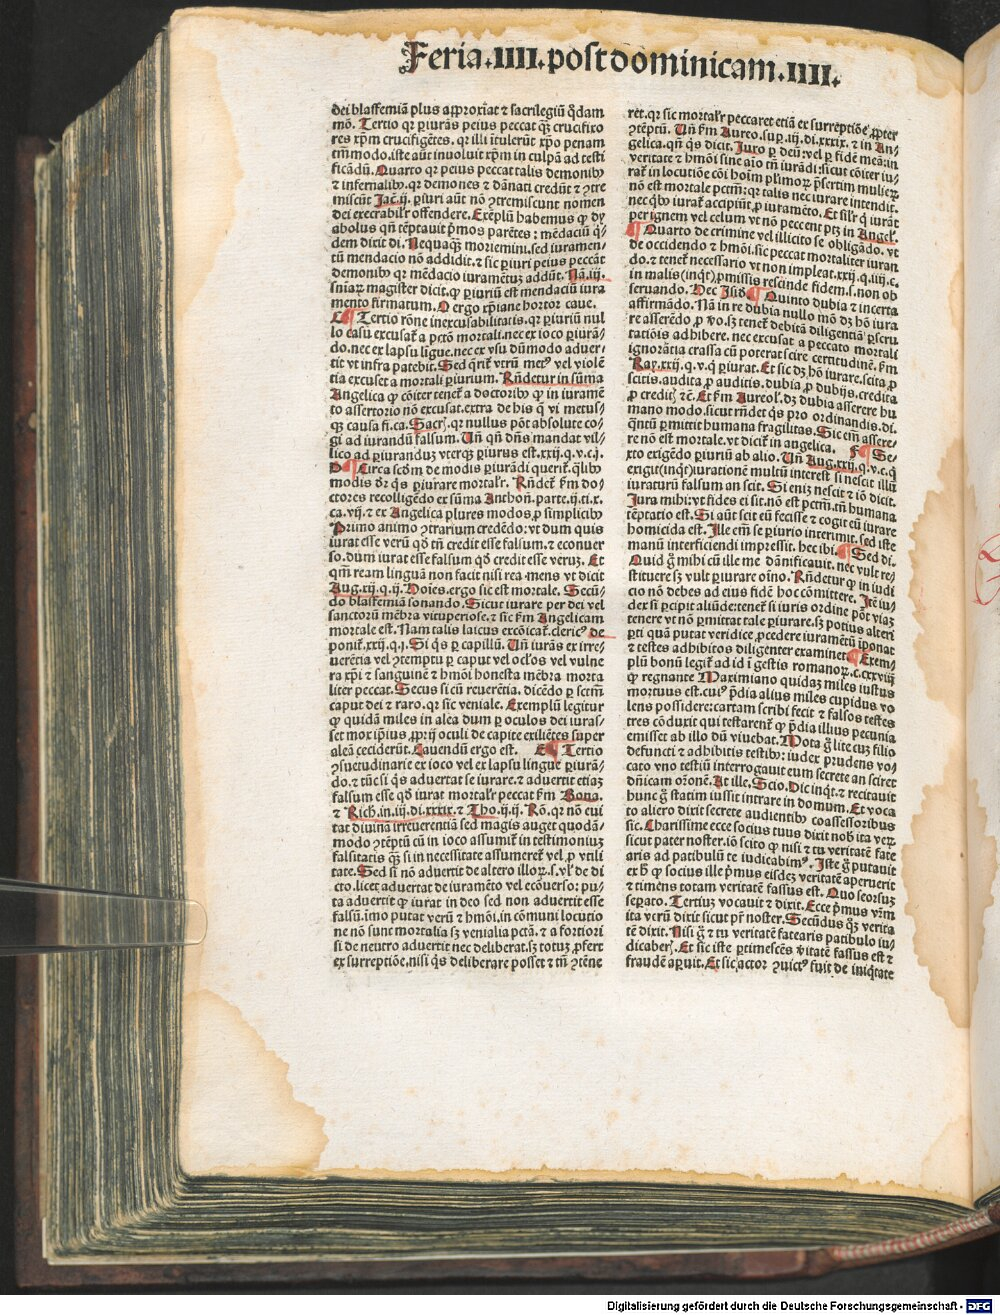 Feria.IIII.post dominicam.IIII.
dei blasfemiā plus approxīat ⁊ sacrilegiū q̄dam
mō. Tertio qꝛ ꝑiurās peius peccat qȝ crucifixo
res xp̄m crucifigētes. qꝛ illi ītulerūt xp̄o penam
tm̄modo. iste aūt inuoluit xp̄m in culpā ad testi
ficādū. Quarto qꝛ peius peccat talis demonibꝰ
⁊ infernalibꝰ. qꝛ demones ⁊ dānati credūt ⁊ ꝯtre
miscūt Jac̄.ij. ꝑiuri aūt nō ꝯtremiscunt nomen
dei execrabilr̄ offendere. Exēplū habemus ꝙ dy
abolus qn̄ tēptauit p̄mos parētes: mēdaciū q̄-
dem dixit dī. Nequaqȝ moriemini. sed iuramen-
tū mendacio nō addidit. ⁊ sic ꝑiuri peius peccāt
demonibꝰ qꝛ mēdacio iuramētuȝ addūt. Nā.iij.
sniaꝝ magister dicit. ꝙ ꝑiuriū est mendaciū iura
mento firmatum. O ergo xp̄iane hortor caue.
C ¶ Tertio rōne inexcusabilitatis. qꝛ ꝑiuriū nul
lo casu excusat̄ a pctō mortali. nec ex ioco ꝑiurā-
do. nec ex lapsu ligue. nec ex vsu dūmodo aduer-
tit vt infra patebit. Sed q̄rit̄ vtrū metꝰ vel violē
tia excuset a mortali ꝑiurium. Rn̄detur in sūma
Angelica ꝙ cōiter tenet̄ a doctoribꝰ ꝙ in iuramē
to assertorio nō excusat. extra de his q̄ vi metus-
qȝ causa fi.ca. Sacr̄. qꝛ nullus pōt absolute co-
gi ad iurandū falsum. Un̄ qn̄ dn̄s mandat vil-
lico ad ꝑiuranduȝ vterqȝ ꝑiurus est.xxij.q.v.c.j.
D ¶ Circa scd̄m de modis ꝑiurādi querit̄. q̄libꝰ
modis dr̄ q̄s ꝑiurare mortalr̄. Rn̄det̄ fm̄ do-
ctores recolligēdo ex sūma Anthon̄. parte.ij.ti.x.
ca.vij. ⁊ ex Angelica plures modos. ꝓ simplicibꝰ
Primo animo ꝯtrarium credēdo: vt dum quis
iurat esse verū qd̄ tn̄ credit esse falsum. ⁊ econuer
so. dum iurat esse falsum qd̄ credit esse veruȝ. Et
qm̄ ream linguā non facit nisi rea mens vt dicit
Aug.xij.q.ij. Hoīes. ergo sic est mortale. Secū-
do blasfemiā sonando. Sicut iurare per dei vel
sanctorū mēbra vituperiose. ⁊ sic fm̄ Angelicam
mortale est. Nam talis laicus excōicat̄. clericꝰ de
ponit̄.xxij.q.j. Si q̄s ꝑ capillū. Un̄ iurās ex irre-
uerētia vel ꝯtemptu ꝑ caput vel oc̄los vel vulne
ra xp̄i ⁊ sanguinē ⁊ hm̄oi honesta mēbra morta
liter peccat. Secus si cū reuerētia. dicēdo ꝑ sctm̄
caput dei ⁊ raro. qꝛ sic veniale. Exemplū legitur
ꝙ quidā miles in alea dum ꝑ oculos dei iuras-
set mox ip̄ius ꝓprij oculi de capite exiliētes super
aleā ceciderūt. Cauendū ergo est. E ¶ Tertio
ꝯsuetudinarie ex ioco vel ex lapsu lingue ꝑiurā-
do. ⁊ tūc si q̄s aduertat se iurare. ⁊ aduertit etiaȝ
falsum esse qd̄ iurat mortalr̄ peccat fm̄ Bona.
⁊ Rich.in.iij.di.xxxix. ⁊ Tho.ij.ij. Rō. qꝛ nō eui
tat diuinā irreuerentiā sed magis auget quodā-
modo ꝯtēptū cū in ioco assumit̄ in testimoniuȝ
falsitatis qȝ si in necessitate assumeret̄ vel ꝓ vtili
tate. Sed si nō aduertit de altero illoꝝ.s.vl̄ de di
cto. licet aduertat de iuramēto vel ecōuerso: pu-
ta aduertit ꝙ iurat in deo sed non aduertit esse
falsū. imo putat verū ⁊ hm̄oi. in cōmuni locutio
ne nō sunt mortalia sȝ venialia pctā. ⁊ a fortiori
si de neutro aduertit nec deliberat. sȝ totuȝ ꝓfert
ex surreptiōe. nisi q̄s deliberare posset ⁊ tn̄ ꝯtēne
ret. qꝛ sic mortalr̄ peccaret etiā ex surreptiōe ꝓpter
ꝯtēptū. Un̄ fm̄ Aureo.sup.iij.di.xxxix. ⁊ in An-
gelica. qn̄ q̄s dicit. Juro ꝑ deū: vel ꝑ fidē meā: in
veritate ⁊ hm̄oi sine aīo tn̄ iurādi: sicut cōiter iu-
rat̄ in locutiōe cōi hoīm pl̄imoꝝ p̄sertim mulieꝝ
nō est mortale pctm̄: qꝛ talis nec iurare intendit.
nec qȝbꝰ iurat̄ accipiūt ꝓ iuramēto. Et silr̄ q̄ iurāt
per ignem vel celum vt nō peccent ptȝ in Angel̄.
¶ Quarto de crimine vel illicito se obligādo. vt
de occidendo ⁊ hm̄oi. sic peccat mortaliter iuran
do. ⁊ tenet̄ necessario vt non impleat.xxij.q.iiij.c.
in malis (inqt̄) ꝓmissis rescinde fidem.s.non ob
seruando. Hec Jsid̄. ¶ Quinto dubia ⁊ incerta
affirmādo. Nā in re dubia nullo mō dȝ hō iura
re asserēdo ꝓ vo. sȝ tenet̄ debitā diligentiā ꝑscru
tatiōis adhibere. nec excusat a peccato mortali
ignorātia crassa cū poterat scire certitudinē. fm̄
Ray.xxij.q.v.q̄ ꝑiurat. Et sic dȝ hō iurare. scita ꝓ
scitis. audita ꝓ auditis. dubia ꝓ dubijs. credita
ꝓ credit̄ ⁊c. Et fm̄ Aureol̄. dȝ dubia asserere hu
mano modo. sicut rn̄det q̄s pro ordinandis. di.
q̄ntū ꝑmittit humana fragilitas. Sic em̄ assere-
re nō est mortale. vt dicit̄ in angelica. F ¶ Se-
xto exigēdo ꝑiuriū ab alio. Un̄ Aug.xxij.q.v.c.q̄
exigit (inqt̄) iurationē multū interest si nescit illū
iuraturū falsum an scit. Si eniȝ nescit ⁊ iō dicit.
Jura mihi: vt fides ei sit. nō est pctm̄. tn̄ humana
tēptatio est. Si aūt scit eū fecisse ⁊ cogit eū iurare
homicida est. Jlle em̄ se ꝑiurio interimit. sed iste
manū interficiendi impressit. hec ibi. ¶ Sed di.
Quid g̊ mihi cū ille me dānificauit. nec vult re-
stituere sȝ vult ꝑiurare oīno. Rn̄detur ꝙ in iudi
cio nō debes ad eius fidē hoc cōmittere. Jtē iu-
dex si ꝑcipit aliūde: tenet̄ si iuris ordine pōt viaȝ
tenere vt nō ꝑmittat tale ꝑiurare. sȝ potius alteri
ꝑti quā putat veridice ꝓcedere iuramētū īponat
⁊ testes adhibitos diligenter examinet. ¶ Exem-
plū bonū legit̄ ad id ī gestis romanoꝝ.c.cxxviij
ꝙ regnante Maximiano quidaȝ miles iustus
mortuus est. cuiꝰ p̄dia alius miles cupidus vo
lens possidere: cartam scribi fecit ⁊ falsos testes
tres cōduxit qui testarent̄ ꝙ p̄dia illius pecunia
emisset ab illo dū viuebat. Mota g̊ lite cuȝ filio
defuncti ⁊ adhibitis testibꝰ: iudex prudens vo-
cato vno testiū interrogauit eum secrete an sciret
dn̄icam orōnē. At ille. Scio. Dic inqt̄. ⁊ recitauit
hunc g̊ statim iussit intrare in domum. Et voca
to aliero dixit secrete audientibꝰ coassessoribus
sic. Charissime ecce socius tuus dixit nob̄ ita veꝝ
sicut pater noster. iō scito ꝙ nisi ⁊ tu veritatē fate
aris ad patibulū te iudicabimꝰ. Jste g̊ putauit
ex h̄ ꝙ socius ille p̄mus eisdeȝ veritatē aperuerit
⁊ timēns totam veritatē fassus est. Quo seorsuȝ
seꝑato. Tertiuȝ vocauit ⁊ dixit. Ecce p̄mus vȝm
ita verū dixit sicut pr̄ noster. Secūdus qȝ verita
tē dixit. Nisi g̊ ⁊ tu veritatē fatearis patibulo iu-
dicaber̄. Et sic iste ꝑtimescēs v̄itatē fassus est ⁊
fraudē aꝑuit. Et sic actor ꝯuictꝰ fuit de iniq̄tate
Digitalisierung gefördert durch die Deutsche Forschungsgemeinschaft - DFG